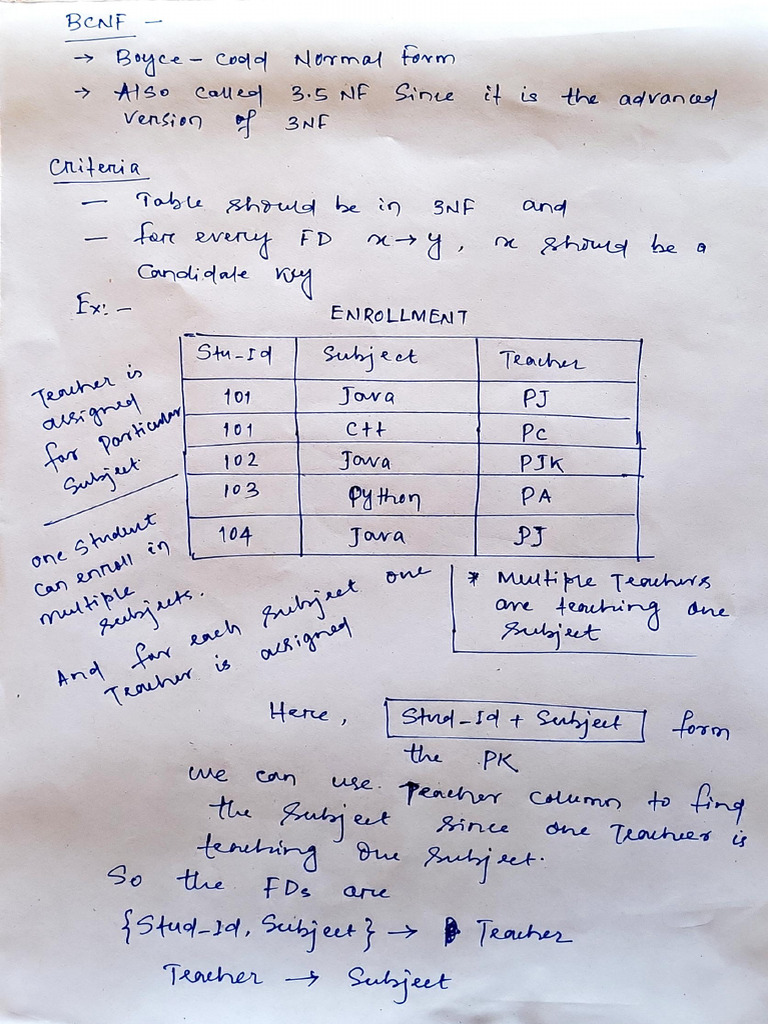 BCNF -
→ Boyce - codd Normal Form
→ Also called 3.5 NF Since it is the advanced
version of 3NF
Criteria
— Table should be in 3NF and
— for every FD x → y, x should be a
Candidate key
Ex: -
ENROLLMENT
Stu_Id Subject Teacher
101 Java PJ
101 C++ PC
102 Java PJK
103 Python PA
104 Java PJ
Teacher is
assigned
for Particular
Subject
one Student
can enroll in
multiple
subjects.
And for each subject one
Teacher is assigned
* Multiple Teachers
are teaching one
subject
Here, Stud_Id + Subject form
the PK
we can use Teacher column to find
the subject since one Teacher is
teaching one subject.
So the FDs are
{Stud_Id, Subject} → Teacher
Teacher → Subject